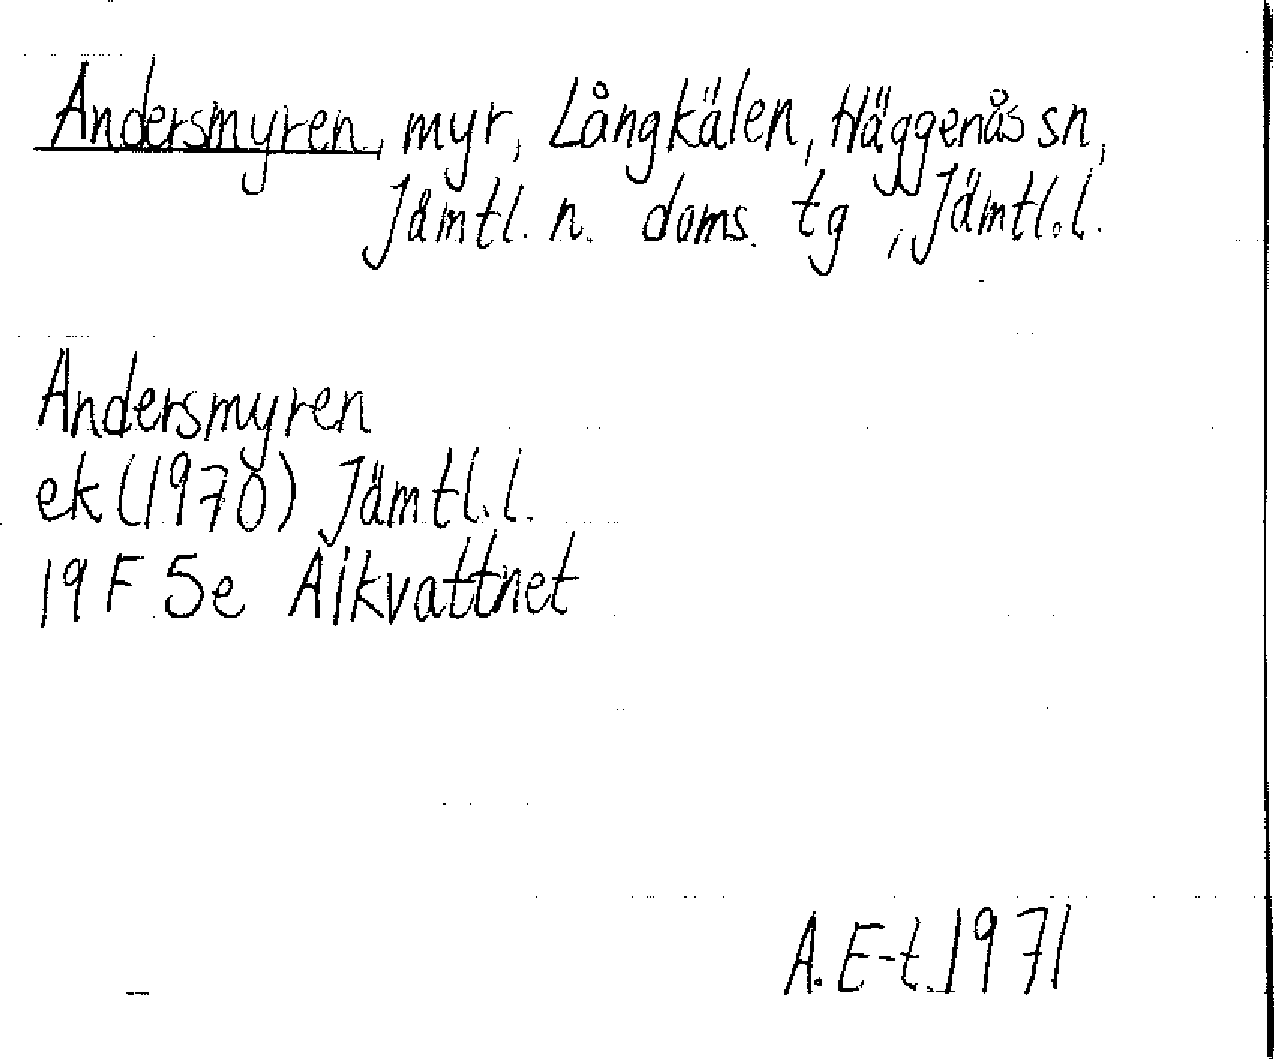 Andersmyren, myr, Långkälen, Häggenås sn,
Jämtl. n. doms. tg, Jämtl.l.
Andersmyren
ek (1970) Jämtl.l.
19 F 5e Ålkvattnet
A. E-t. 1971